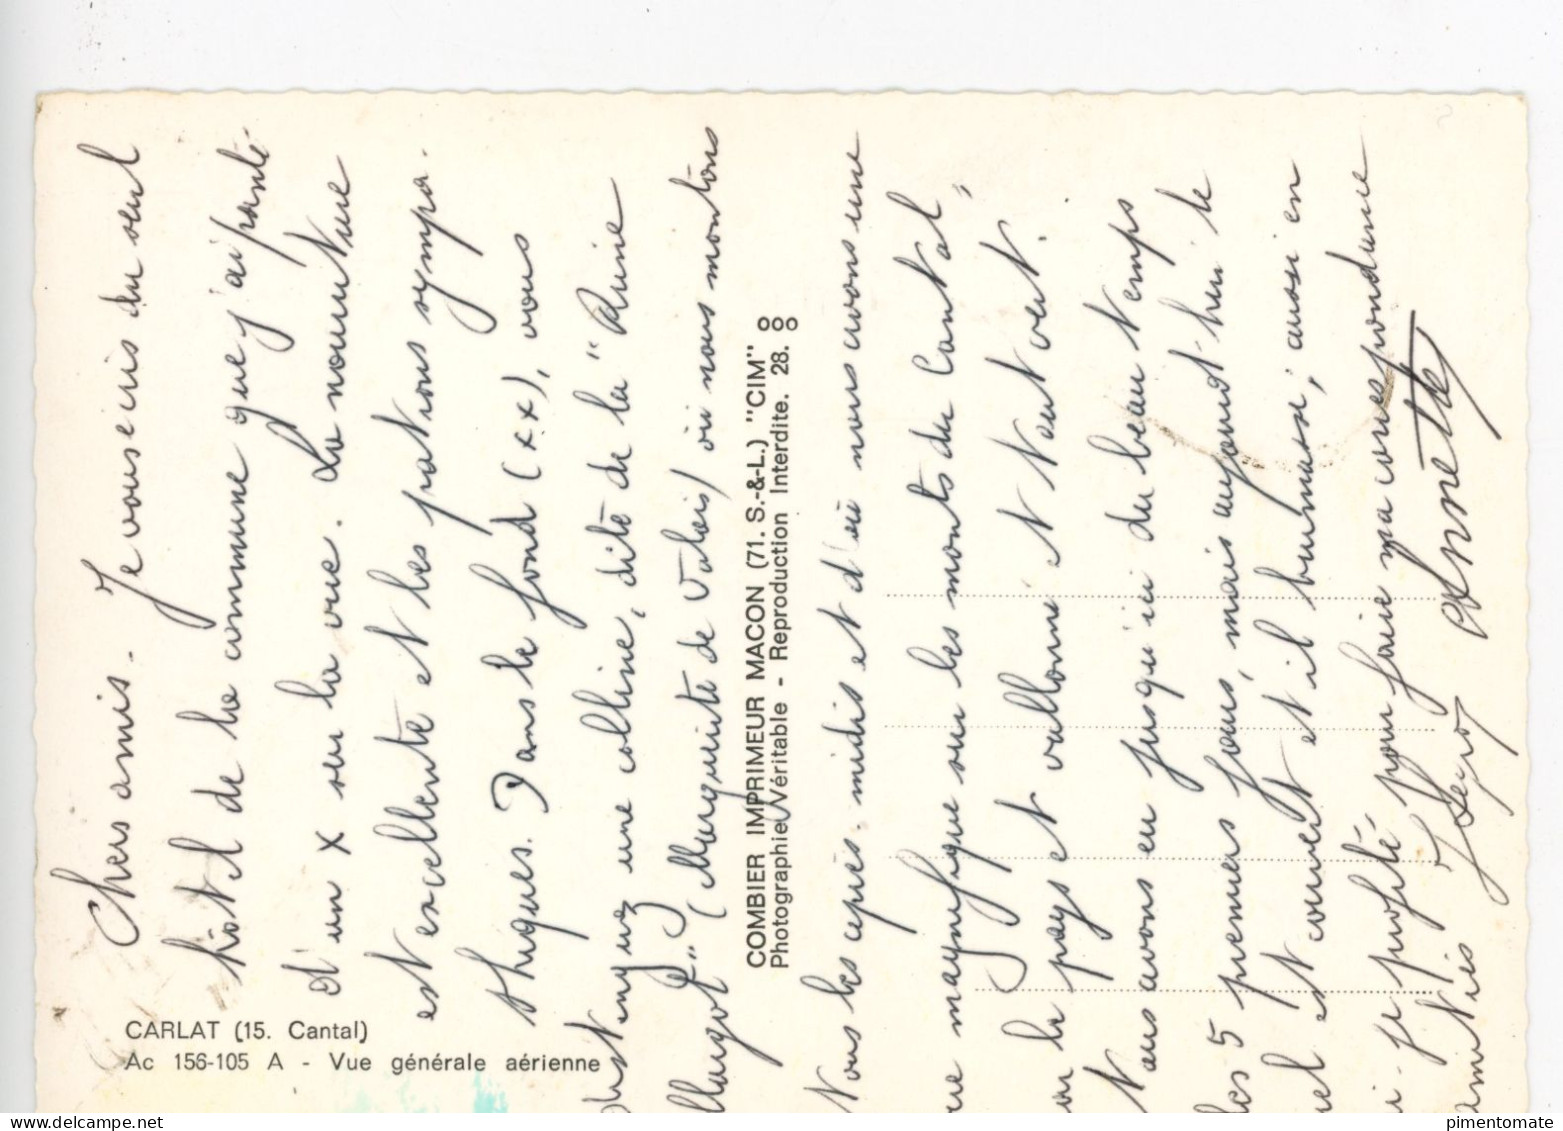 Chers amis. Je vous écris du seul
hôtel de la commune que j'ai pointé
d'un x sur la vue. La nourriture
est excellente et les patrons sympa-
thiques. Dans le fond (xx), vous
distinguez une colline, dite de la "Ruine
Margot" (Marguerite de Valois) où nous montons
COMBIER IMPRIMEUR MACON (71. S.-&-L.) "CIM"
Photographie Véritable - Reproduction Interdite. 28.
tous les après-midis et d'où nous avons une
vue magnifique sur les monts du Cantal,
sur le pays et vallonné et tout vert.
Nous avons eu jusqu'ici du beau temps
les 5 premiers jours, mais aujourd'hui le
ciel est couvert et il brumasse, aussi en
ai-je profité pour faire ma correspondance
amitiés Annette
CARLAT (15. Cantal)
Ac 156-105 A - Vue générale aérienne
pimentomate